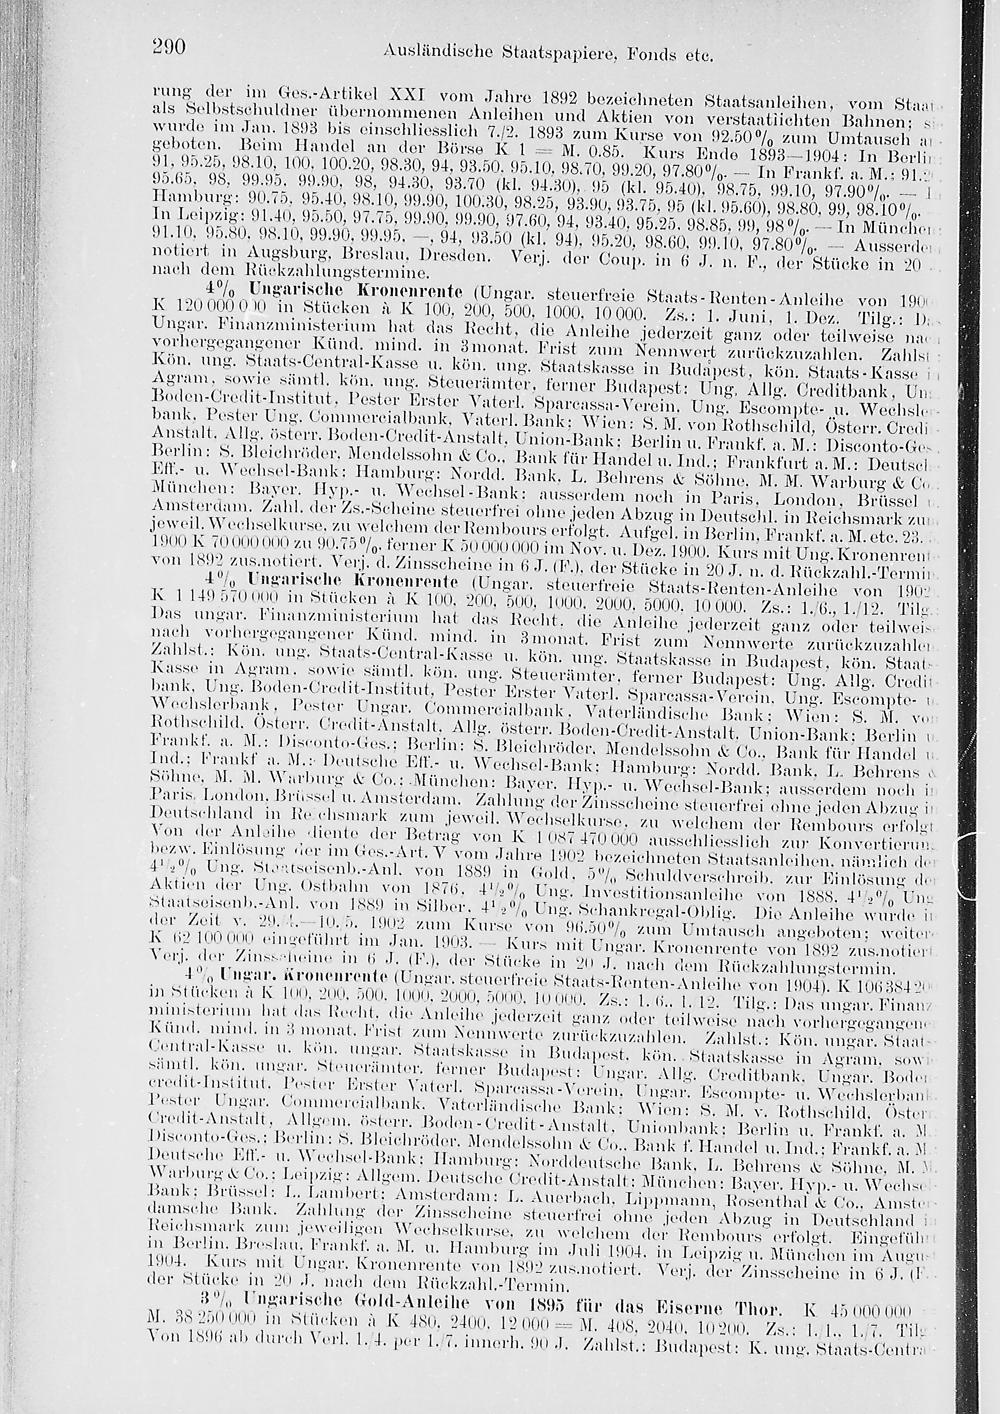 290
Ausländische Staatspapiere, Fonds etc.
rung der im Ges.-Artikel XXI vom Jahre 1892 bezeichneten Staatsanleihen, vom Staat
als Selbstschuldner übernommenen Anleihen und Aktien von verstaatlichten Bahnen; s
wurde im Jan. 1893 bis einschliesslich 7./2. 1893 zum Kurse von 92.50% zum Umtausch a
geboten. Beim Handel an der Börse K 1 = M. 0.85. Kurs Ende 1893—1904: In Berli
91, 95.25, 98.10, 100, 100.20, 98.30, 94, 93.50, 95.10, 98.70, 99.20, 97.80%. — In Frankf. a. M.: 91.
95.65, 98, 99.95, 99.90, 98, 94.30, 93.70 (kl. 94.30), 95 (kl. 95.40), 98.75, 99.10, 97.90%. — I
Hamburg: 90.75, 95.40, 98.10, 99.90, 100.30, 98.25, 93.90, 93.75, 95 (kl. 95.60), 98.80, 99, 98.10%.
In Leipzig: 91.40, 95.50, 97.75, 99.90, 99.90, 97.60, 94, 93.40, 95.25, 98.85, 99, 98%. — In München:
91.10, 95.80, 98.10, 99.90, 99.95, —, 94, 93.50 (kl. 94), 95.20, 98.60, 99.10, 97.80%. — Ausserde
notiert in Augsburg, Breslau, Dresden. Verj. der Coup. in 6 J. n. F., der Stücke in 20
nach dem Rückzahlungstermine.
4% Ungarische Kronenrente (Ungar. steuerfreie Staats-Renten-Anleihe von 190
K 120 000 000 in Stücken à K 100, 200, 500, 1000, 10 000. Zs.: 1. Juni, 1. Dez. Tilg.: D
Ungar. Finanzministerium hat das Recht, die Anleihe jederzeit ganz oder teilweise nac
vorhergegangener Künd. mind. in 3monat. Frist zum Nennwert zurückzuzahlen. Zahlst
Kön. ung. Staats-Central-Kasse u. kön. ung. Staatskasse in Budapest, kön. Staats-Kasse i
Agram, sowie sämtl. kön. ung. Steuerämter, ferner Budapest: Ung. Allg. Creditbank, Un
Boden-Credit-Institut, Pester Erster Vaterl. Sparcassa-Verein, Ung. Escompte- u. Wechsle
bank, Pester Ung. Commercialbank, Vaterl. Bank; Wien: S. M. von Rothschild, Österr. Credi
Anstalt, Allg. österr. Boden-Credit-Anstalt, Union-Bank; Berlin u. Frankf. a. M.: Disconto-Ges.
Berlin: S. Bleichröder, Mendelssohn & Co., Bank für Handel u. Ind.; Frankfurt a. M.: Deutsch
Eff.- u. Wechsel-Bank; Hamburg: Nordd. Bank, L. Behrens & Söhne, M. M. Warburg & Co.
München: Bayer. Hyp.- u. Wechsel-Bank; ausserdem noch in Paris, London, Brüssel u
Amsterdam. Zahl. der Zs.-Scheine steuerfrei ohne jeden Abzug in Deutschl. in Reichsmark zum
jeweil. Wechselkurse, zu welchem der Rembours erfolgt. Aufgel. in Berlin, Frankf. a. M. etc. 23.
1900 K 70 000 000 zu 90.75%, ferner K 50 000 000 im Nov. u. Dez. 1900. Kurs mit Ung. Kronenrent
von 1892 zus.notiert. Verj. d. Zinsscheine in 6 J. (F.), der Stücke in 20 J. n. d. Rückzahl.-Termin
4% Ungarische Kronenrente (Ungar. steuerfreie Staats-Renten-Anleihe von 1902
K 1 149 570 000 in Stücken à K 100, 200, 500, 1000, 2000, 5000, 10 000. Zs.: 1./6., 1./12. Tilg.:
Das ungar. Finanzministerium hat das Recht, die Anleihe jederzeit ganz oder teilweis
nach vorhergegangener Künd. mind. in 3monat. Frist zum Nennwerte zurückzuzahlen
Zahlst.: Kön. ung. Staats-Central-Kasse u. kön. ung. Staatskasse in Budapest, kön. Staat-
Kasse in Agram, sowie sämtl. kön. ung. Steuerämter, ferner Budapest: Ung. Allg. Credit
bank, Ung. Boden-Credit-Institut, Pester Erster Vaterl. Sparcassa-Verein, Ung. Escompte- u
Wechslerbank, Pester Ungar. Commercialbank, Vaterländische Bank; Wien: S. M. vo
Rothschild, Österr. Credit-Anstalt, Allg. österr. Boden-Credit-Anstalt, Union-Bank; Berlin u
Frankf. a. M.: Disconto-Ges.; Berlin: S. Bleichröder, Mendelssohn & Co., Bank für Handel u
Ind.; Frankf. a. M.: Deutsche Eff.- u. Wechsel-Bank; Hamburg: Nordd. Bank, L. Behrens &
Söhne, M. M. Warburg & Co.; München: Bayer. Hyp.- u. Wechsel-Bank; ausserdem noch i
Paris, London, Brüssel u. Amsterdam. Zahlung der Zinsscheine steuerfrei ohne jeden Abzug i
Deutschland in Reichsmark zum jeweil. Wechselkurse, zu welchem der Rembours erfolgt
Von der Anleihe diente der Betrag von K 1 087 470 000 ausschliesslich zur Konvertierun
bezw. Einlösung der im Ges.-Art. V vom Jahre 1902 bezeichneten Staatsanleihen, nämlich de
4½% Ung. Staatseisenb.-Anl. von 1889 in Gold, 5% Schuldverschreib. zur Einlösung de
Aktien der Ung. Ostbahn von 1876, 4½% Ung. Investitionsanleihe von 1888, 4½% Ung
Staatseisenb.-Anl. von 1889 in Silber, 4½% Ung. Schankregal-Oblig. Die Anleihe wurde i
der Zeit v. 29./4.—10./5. 1902 zum Kurse von 96.50% zum Umtausch angeboten; weiter
K 62 100 000 eingeführt im Jan. 1903. — Kurs mit Ungar. Kronenrente von 1892 zus.notiert
Verj. der Zinsscheine in 6 J. (F.), der Stücke in 20 J. nach dem Rückzahlungstermin.
4% Ungar. Kronenrente (Ungar. steuerfreie Staats-Renten-Anleihe von 1904). K 106 384 20
in Stücken à K 100, 200, 500, 1000, 2000, 5000, 10 000. Zs.: 1./6., 1./12. Tilg.: Das ungar. Finanz
ministerium hat das Recht, die Anleihe jederzeit ganz oder teilweise nach vorhergegangene
Künd. mind. in 3 monat. Frist zum Nennwerte zurückzuzahlen. Zahlst.: Kön. ungar. Staat-
Central-Kasse u. kön. ungar. Staatskasse in Budapest, kön. Staatskasse in Agram, sowi
sämtl. kön. ungar. Steuerämter, ferner Budapest: Ungar. Allg. Creditbank, Ungar. Boden
credit-Institut, Pester Erster Vaterl. Sparcassa-Verein, Ungar. Escompte- u. Wechslerbank
Pester Ungar. Commercialbank, Vaterländische Bank; Wien: S. M. v. Rothschild, Öster
Credit-Anstalt, Allgem. österr. Boden-Credit-Anstalt, Unionbank; Berlin u. Frankf. a. M
Disconto-Ges.; Berlin: S. Bleichröder, Mendelssohn & Co., Bank f. Handel u. Ind.; Frankf. a. M
Deutsche Eff.- u. Wechsel-Bank; Hamburg: Norddeutsche Bank, L. Behrens & Söhne, M. M.
Warburg & Co.; Leipzig: Allgem. Deutsche Credit-Anstalt; München: Bayer. Hyp.- u. Wechse
Bank; Brüssel: L. Lambert; Amsterdam: L. Auerbach, Lippmann, Rosenthal & Co., Amster
damsche Bank. Zahlung der Zinsscheine steuerfrei ohne jeden Abzug in Deutschland i
Reichsmark zum jeweiligen Wechselkurse, zu welchem der Rembours erfolgt. Eingeführt
in Berlin, Breslau, Frankf. a. M. u. Hamburg im Juli 1904, in Leipzig u. München im Augu
1904. Kurs mit Ungar. Kronenrente von 1892 zus.notiert. Verj. der Zinsscheine in 6 J. (F.
der Stücke in 20 J. nach dem Rückzahl.-Termin.
3% Ungarische Gold-Anleihe von 1895 für das Eiserne Thor. K 45 000 000
M. 38 250 000 in Stücken à K 480, 2400, 12 000 = M. 408, 2040, 10 200. Zs.: 1./1., 1./7. Tilg
Von 1896 ab durch Verl. 1./4. per 1./7. innerh. 90 J. Zahlst.: Budapest: K. ung. Staats-Centra